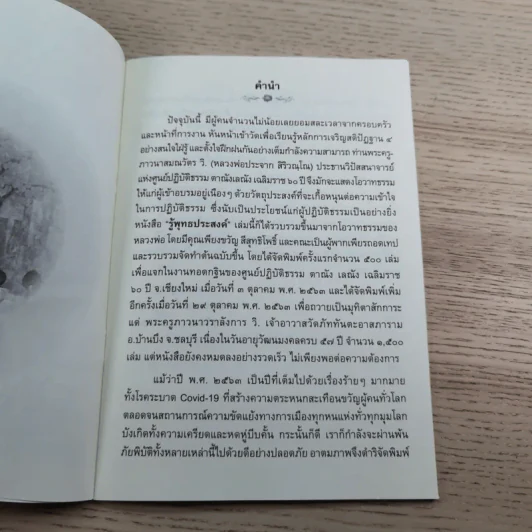 คำนำ
ปัจจุบันนี้ มีผู้คนจำนวนไม่น้อยเลยยอมสละเวลาจากครอบครัว
และหน้าที่การงาน หันหน้าเข้าวัดเพื่อเรียนรู้หลักการเจริญสติปัฏฐาน ๔
อย่างสนใจใฝ่รู้ และตั้งใจฝึกฝนกันอย่างเต็มกำลังความสามารถ ท่านพระครู-
ภาวนาสมณวัตร วิ. (หลวงพ่อประจาก สิริวณฺโณ) ประธานวิปัสสนาจารย์
แห่งศูนย์ปฏิบัติธรรม ตาณัง เลณัง เฉลิมราช ๖๐ ปี จึงมักจะแสดงโอวาทธรรม
ให้แก่ผู้เข้าอบรมอยู่เนืองๆ ด้วยวัตถุประสงค์ที่จะเกื้อหนุนต่อความเข้าใจ
ในการปฏิบัติธรรม ซึ่งนับเป็นประโยชน์แก่ผู้ปฏิบัติธรรมเป็นอย่างยิ่ง
หนังสือ “รู้พุทธประสงค์” เล่มนี้ก็ได้รวบรวมขึ้นมาจากโอวาทธรรมของ
หลวงพ่อ โดยมีคุณเพียงขวัญ ลีสุทธิโพธิ์ และคณะเป็นผู้พากเพียรถอดเทป
และรวบรวมจัดทำต้นฉบับขึ้น โดยได้จัดพิมพ์ครั้งแรกจำนวน ๕๐๐ เล่ม
เพื่อแจกในงานทอดกฐินของศูนย์ปฏิบัติธรรม ตาณัง เลณัง เฉลิมราช
๖๐ ปี จ.เชียงใหม่ เมื่อวันที่ ๓ ตุลาคม พ.ศ. ๒๕๖๓ และได้จัดพิมพ์เพิ่ม
อีกครั้งเมื่อวันที่ ๒๙ ตุลาคม พ.ศ. ๒๕๖๓ เพื่อถวายเป็นมุทิตาสักการะ
แด่ พระครูภาวนาวราลังการ วิ. เจ้าอาวาสวัดภัททันตะอาสภาราม
อ.บ้านบึง จ.ชลบุรี เนื่องในวันอายุวัฒนมงคลครบ ๕๗ ปี จำนวน ๑,๕๐๐
เล่ม แต่หนังสือยังคงหมดลงอย่างรวดเร็ว ไม่เพียงพอต่อความต้องการ
แม้ว่าปี พ.ศ. ๒๕๖๓ เป็นปีที่เต็มไปด้วยเรื่องร้ายๆ มากมาย
ทั้งโรคระบาด Covid-19 ที่สร้างความตระหนกสะเทือนขวัญผู้คนทั่วโลก
ตลอดจนสถานการณ์ความขัดแย้งทางการเมืองทุกหนแห่งทั่วทุกมุมโลก
บังเกิดทั้งความเครียดและหดหู่บีบคั้น กระนั้นก็ดี เราก็กำลังจะผ่านพ้น
ภัยพิบัติทั้งหลายเหล่านี้ไปด้วยดีอย่างปลอดภัย อาตมภาพจึงดำริจัดพิมพ์